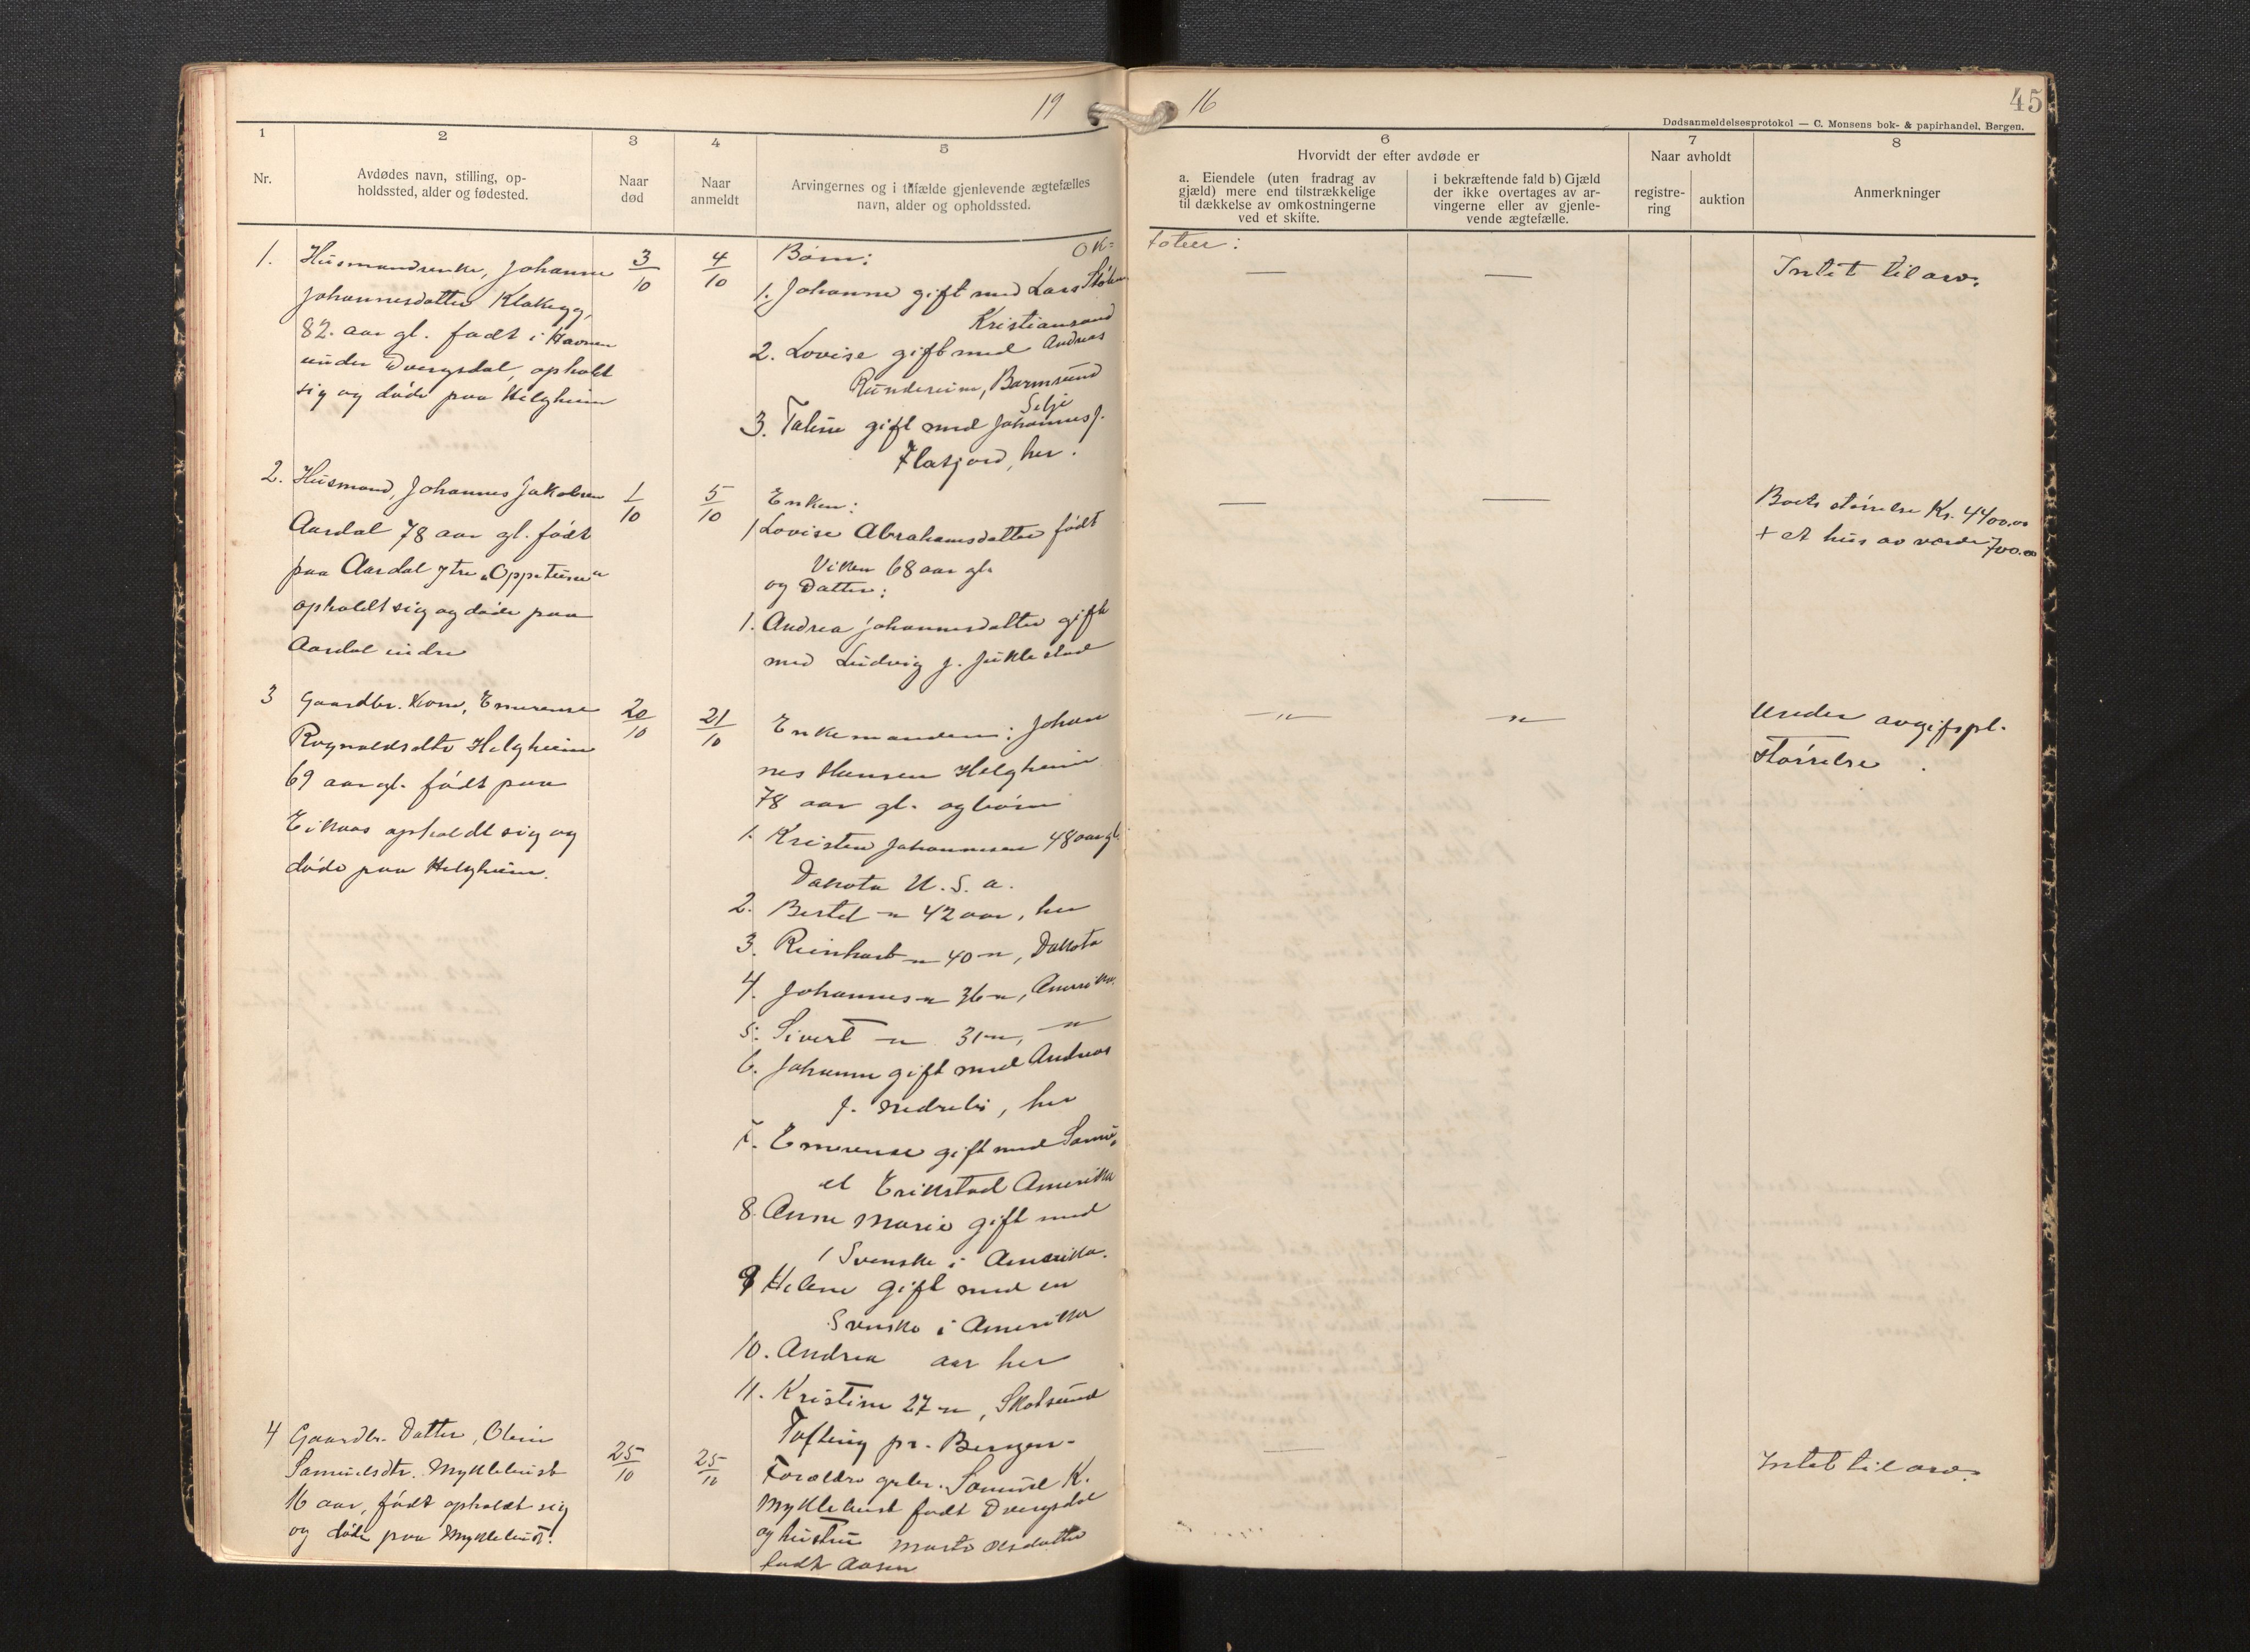 19 16
45
Dødsanmeldelsesprotokol — C. Monsens bok- & papirhandel, Bergen.
1
2
3
4
5
6
7
8
Nr.
Avdødes navn, stilling, op-
holdssted, alder og fødested.
Naar
død
Naar
anmeldt
Arvingernes og i tilfælde gjenlevende ægtefælles
navn, alder og opholdssted.
Hvorvidt der efter avdøde er
a. Eiendele (uten fradrag av
gjæld) mere end tilstrækkelige
til dækkelse av omkostningerne
ved et skifte.
i bekræftende fald b) Gjæld
der ikke overtages av ar-
vingerne eller av gjenle-
vende ægtefælle.
Naar avholdt
registre-
ring
auktion
Anmerkninger
Ok= tober:
1.
Husmandsenke, Johanne
Johannesdatter Klakegg,
82. aar gl. født i Havnen
under Dvergsdal, opholdt
sig og døde paa Helgheim
3/10
4/10
Børn:
1. Johanne gift med Lars
Kristiansand
2. Lovise gift med Andreas
Rundereim, Barmsund
Selje
3. Taline gift med Johannes J.
Flatjord, her.
—
—
Intet til arv.
2.
Husmand, Johannes Jakobsen
Aardal 78 aar gl. født
paa Aardal ytre „Oppetune“
opholdt sig og døde paa
Aardal indre
1/10
5/10
Enken:
1 Lovise Abrahamsdatter født
Viken 68 aar gl.
og Datter:
1. Andrea Johannesdatter gift
med Ludvig J. Juklestad
—
—
Boets størrelse Kr. 4400.00
+ et hus av værdi 700.00
3
Gaardbr. Kone, Emerense
Rognaldsdtr Helgheim
69 aar gl. født paa
Eikaas opholdt sig og
døde paa Helgheim.
20/10
21/10
Enkemanden: Johan
nes Hansen Helgheim
78 aar gl. og børn
1. Kristen Johannesen 48 aar gl.
Dakota U. S. a.
2. Bertel -"- 42 aar, her
3. Reinhart -"- 40 -"-, Dakota
4. Johannes -"- 36 -"-, Amerika.
5. Sivert -"- 31 -"-, -"-
6. Johanne gift med Andreas
J. Nedrebø, her
7. Emerense gift med Samu=
el Erikstad Amerika
8. Anne Marie gift med
1 Svenske i Amerika.
9 Helene gift med en
Svenske i Amerika
10. Andrea aar her
11. Kristine 27 -"-, Skotsund
Tofting pr. Bergen.
-"-
-"-
Under avgifspl.
størrelse.
4
Gaardbr. Datter, Oline
Samuelsdtr. Myklebust
16 aar, født opholdt sig
og døde paa Myklebust.
25/10
25/10
Forældre gbr. Samuel K.
Myklebust født Dvergsdal
og hustru Marte Olsdatter
født Aasen
—
—
Intet til arv.